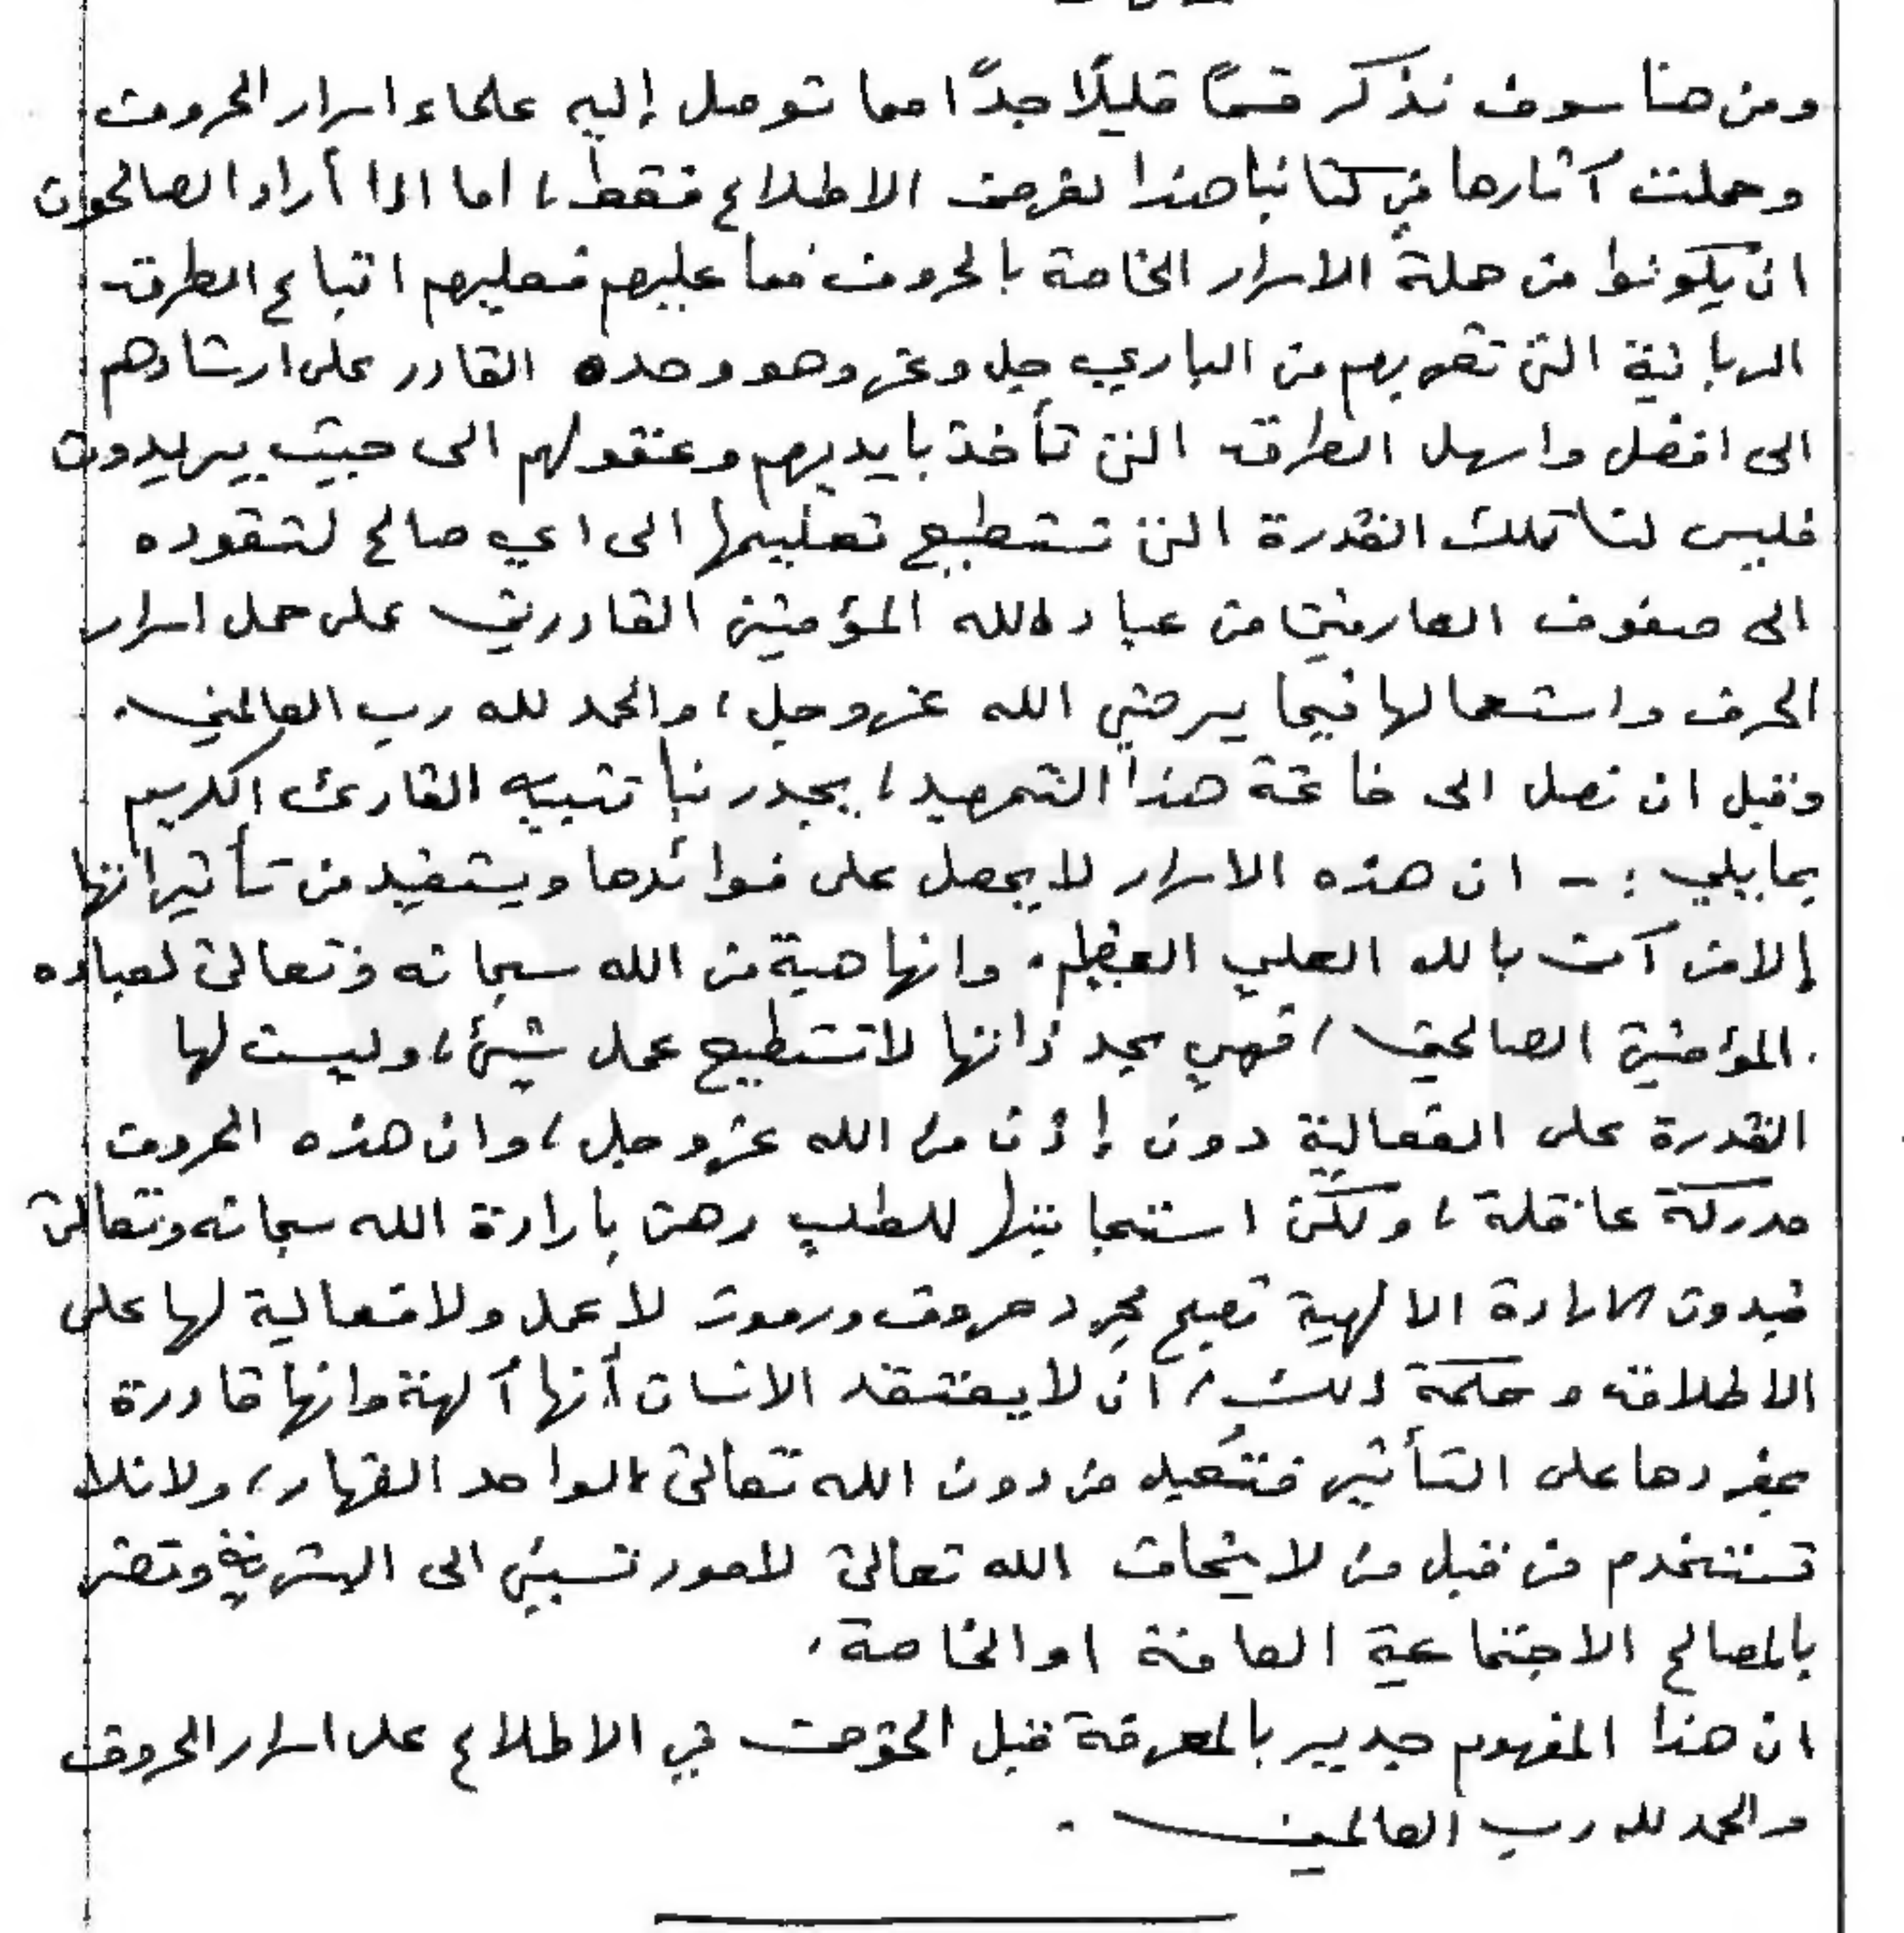 ومن هنا سوف نذكر قسمًا قليلًا جدًا مما توصل إليه علماء اسرار الحروف
وحملت آثارها في كتابنا هذا لغرض الاطلاع فقط، اما اذا أراد الصالحون
ان يكونوا من حملة الاسرار الخاصة بالحروف فما عليهم فعليهم اتباع الطرق
الربانية التي تقربهم من الباري جل وعز وهو وحده القادر على ارشادهم
الى افضل واسهل الطرق التي تأخذ بايديهم وعقولهم الى حيث يريدون
فليس لنا تلك القدرة التي تستطيع تعليمها الى اي صالح لتقوده
الى صفوف العارفين من عباد الله المؤمنين القادرين على حمل اسرار
الحرف واستعمالها فيما يرضي الله عز وجل، والحمد لله رب العالمين.
وقبل ان نصل الى خاتمة هذا التمهيد، يجدر بنا تنبيه القارئ الكريم
بمايلي :- ان هذه الاسرار لا يحصل على فوائدها ويستفيد من تأثيراتها
إلا من آمن بالله العلي العظيم. وانها هبة من الله سبحانه وتعالى لعباده
المؤمنين الصالحين، فهي بحد ذاتها لا تستطيع عمل شيئ، وليست لها
القدرة على الفعالية دون إذن من الله عز وجل، وان هذه الحروف
مدركة عاقلة، ولكن استجابتها للطلب رهن بارادة الله سبحانه وتعالى
فبدون الارادة الالهية تصبح مجرد حروف ورموز لا عمل ولا فعالية لها على
الاطلاق وحكمة ذلك، ان لا يعتقد الانسان أنها آلهة وانها قادرة
بمفردها على التأثير فتُعبد من دون الله تعالى الواحد القهار، ولئلا
تستخدم من قبل من لا يخاف الله تعالى لامور تسيئ الى البشرية وتضر
بالمصالح الاجتماعية العامة او الخاصة.
ان هذا المفهوم جدير بالمعرفة قبل الخوض في الاطلاع على اسرار الحروف
والحمد لله رب العالمين.
totfim